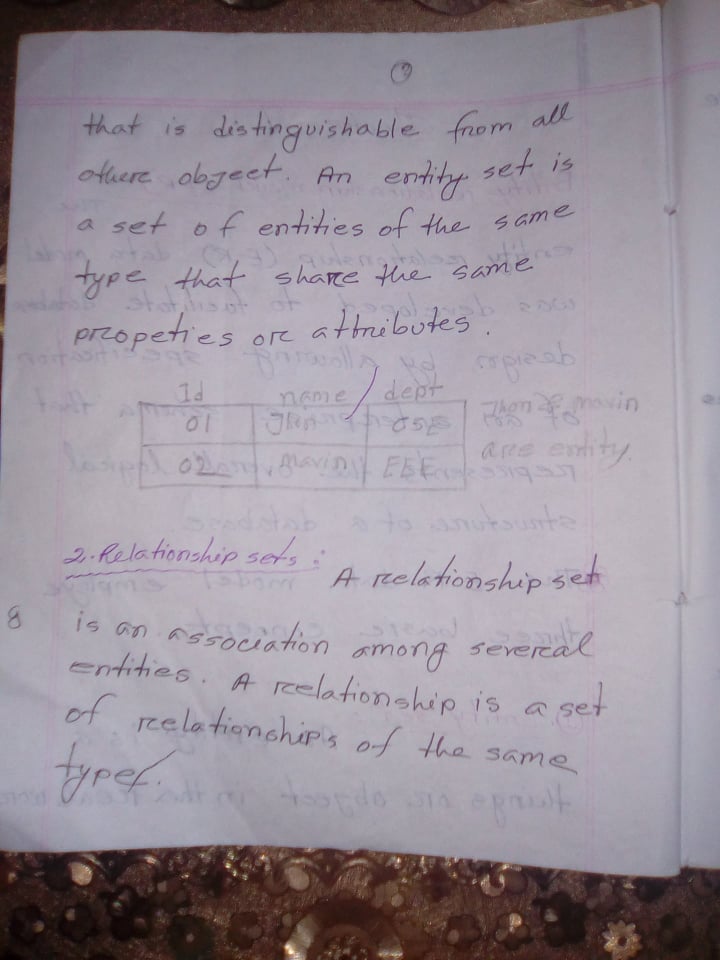 that is distinguishable from all
othere object. An entity set is
a set of entities of the same
type that share the same
propeties or attributes.
Id name dept
01 CSE
02 mavin EEE
mavin
are entity.
2. Relationship sets :
A relationship set
8
is an association among several
entities. A relationship is a set
of relationships of the same
type.